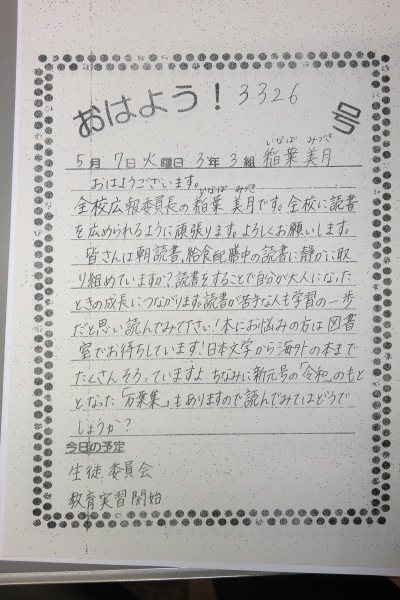 おはよう！ 3326 号
いなば みづき
5月 7日 火曜日 3年 3組 稲葉 美月
おはようございます。
いなば みづき
全校広報委員長の稲葉 美月です。全校に読書
を広められるように頑張ります。よろしくお願いします。
皆さんは朝読書、給食配膳中の読書に静かに取
り組めていますか？読書をすることで自分が大人になった
ときの成長につながります。読書が苦手な人も学習の一歩
だと思い読んでみて下さい！本にお悩みの方は図書
室でお待ちしています！日本文学から海外の本まで
たくさんそろっていますよ。ちなみに新元号の「令和」のもと
となった「万葉集」もありますので読んでみてはどうで
しょうか？
今日の予定
生徒委員会
教育実習開始